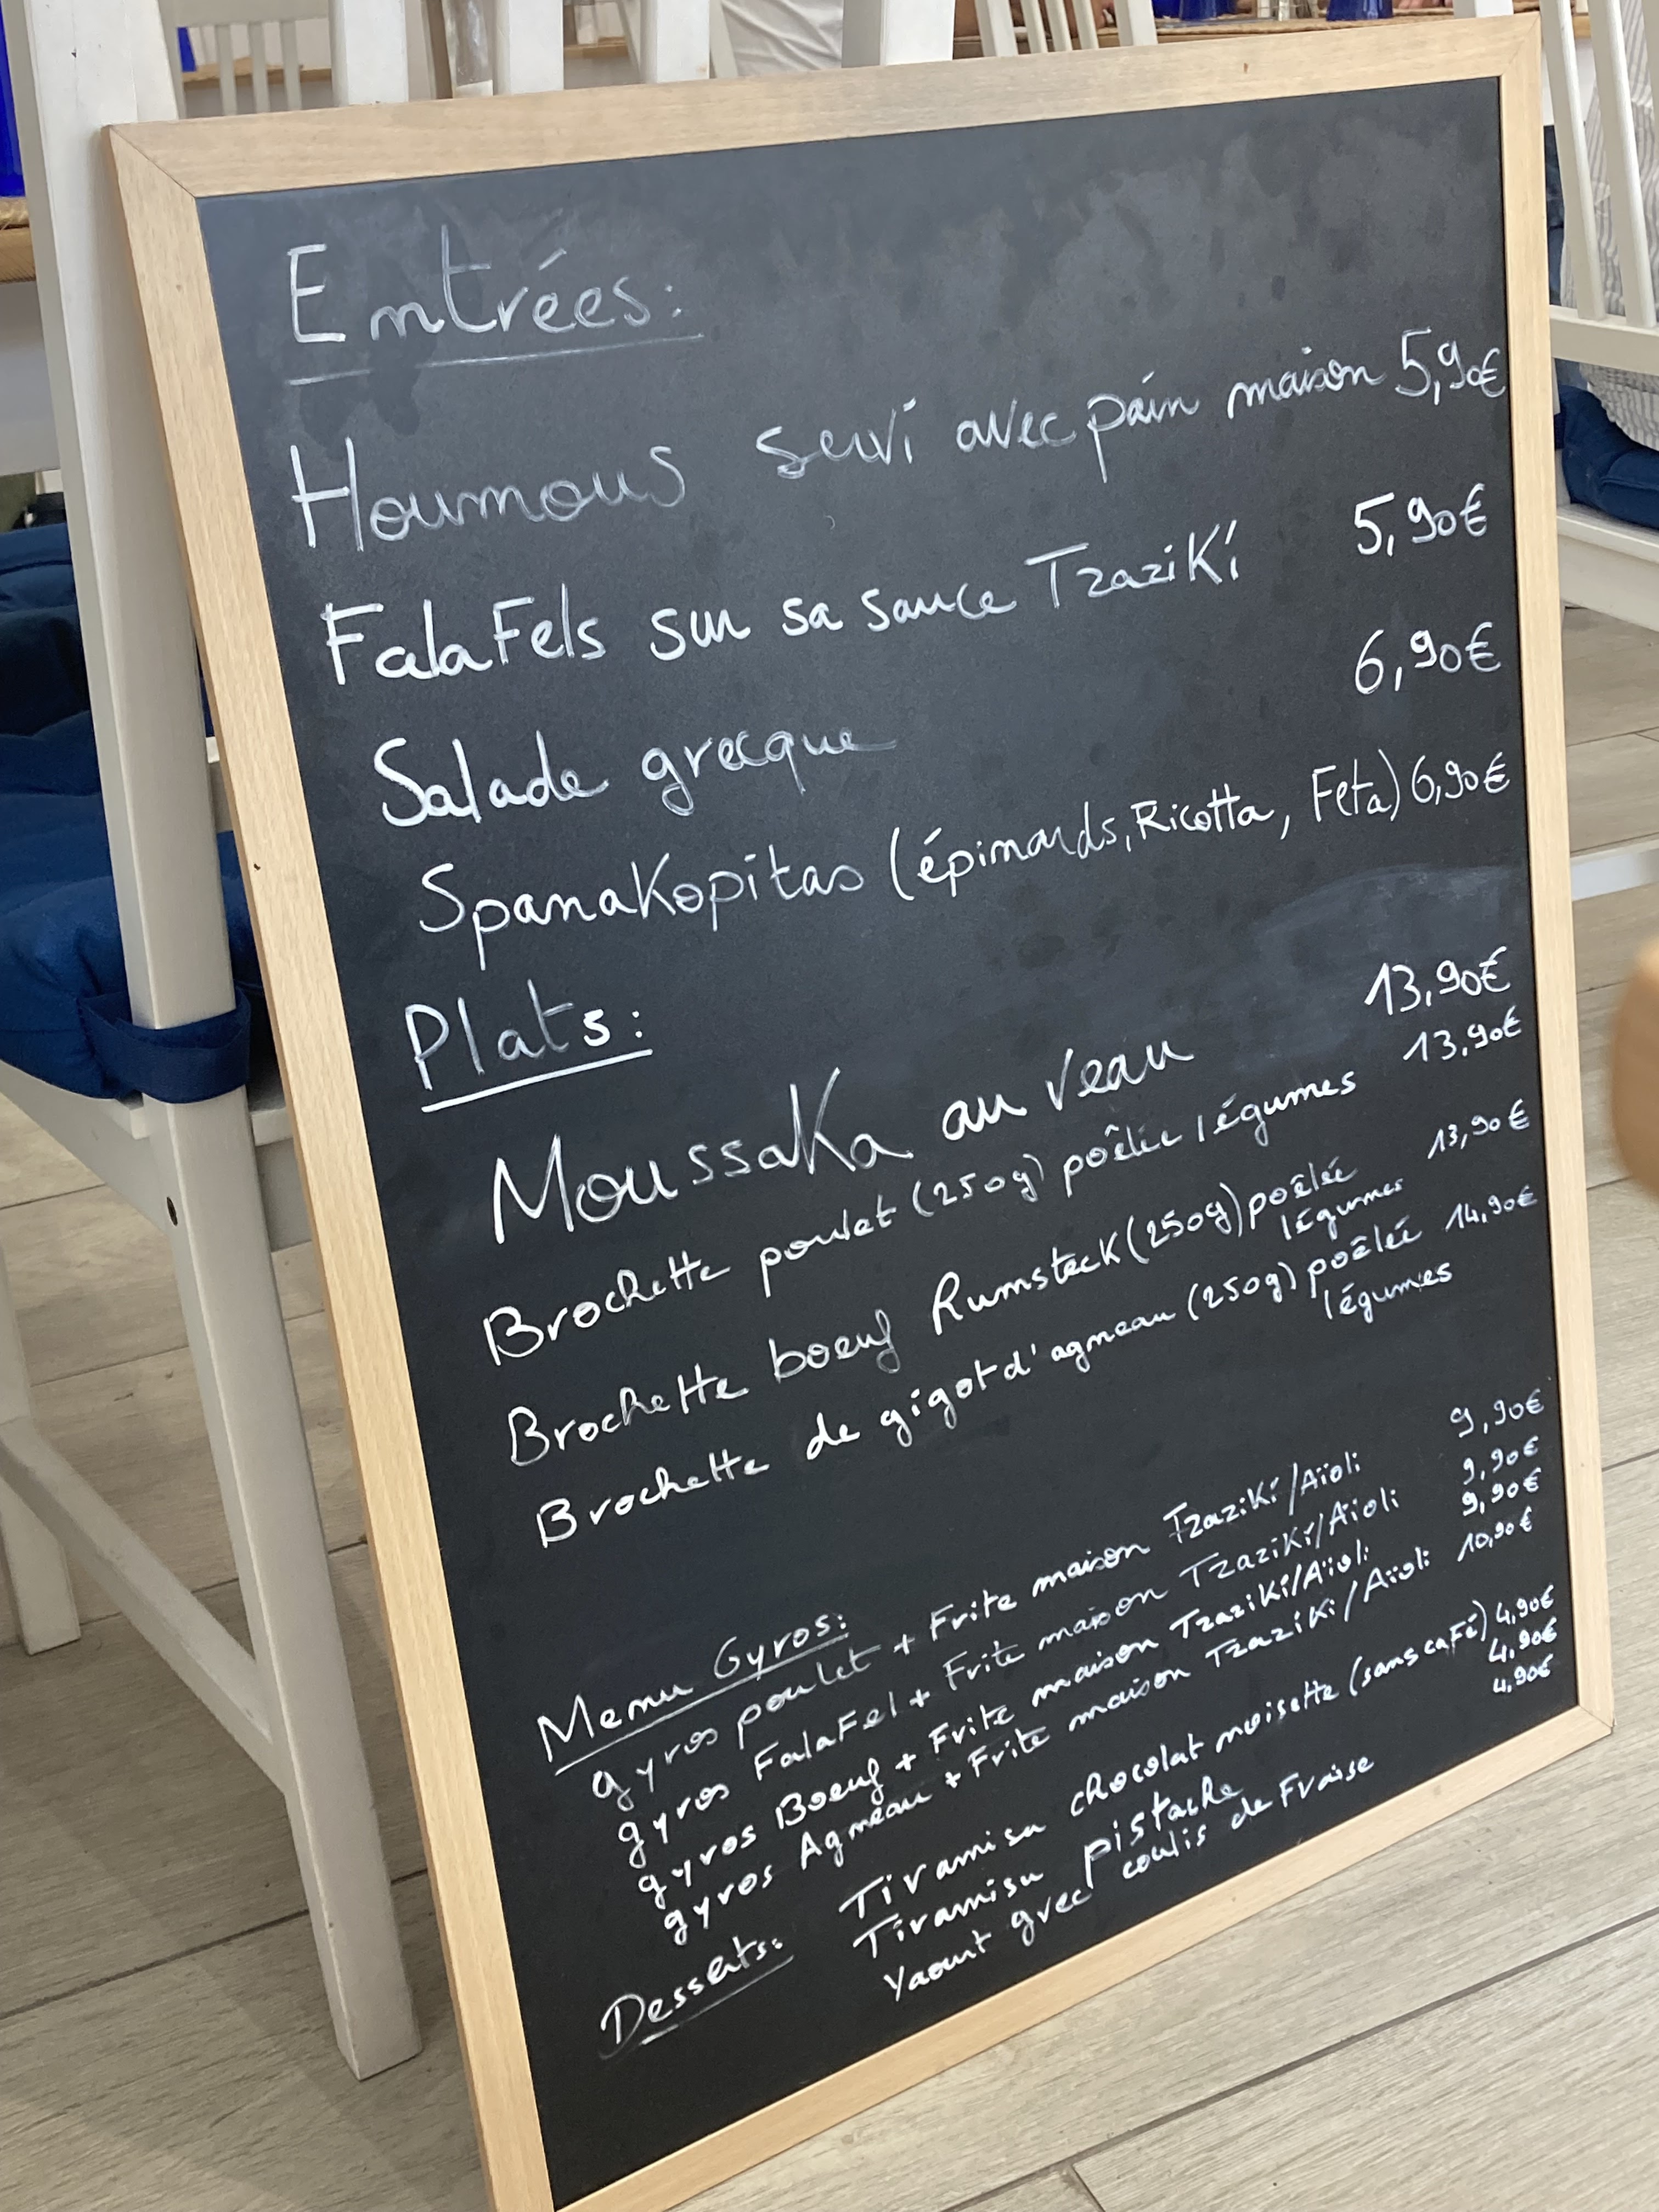 Entrées:
Houmous servi avec pain maison 5,90€
FalaFels sur sa sauce Tzaziki 5,90€
Salade grecque 6,90€
Spanakopitas (épinards, Ricotta, Feta) 6,90€
Plats:
Moussaka au veau 13,90€
Brochette poulet (250g) poêlée légumes 13,90€
Brochette boeuf Rumsteck (250g) poêlée 13,90€
légumes
Brochette de gigot d'agneau (250g) poêlée 14,90€
légumes
Menu Gyros:
gyros poulet + Frite maison Tzaziki/Aïoli 9,90€
gyros FalaFel + Frite maison Tzaziki/Aïoli 9,90€
gyros Boeuf + Frite maison Tzaziki/Aïoli 9,90€
gyros Agneau + Frite maison Tzaziki/Aïoli 10,90€
Desserts: Tiramisu chocolat noisette (sans caFé) 4,90€
Tiramisu pistache 4,90€
Yaourt grec coulis de Fraise 4,90€